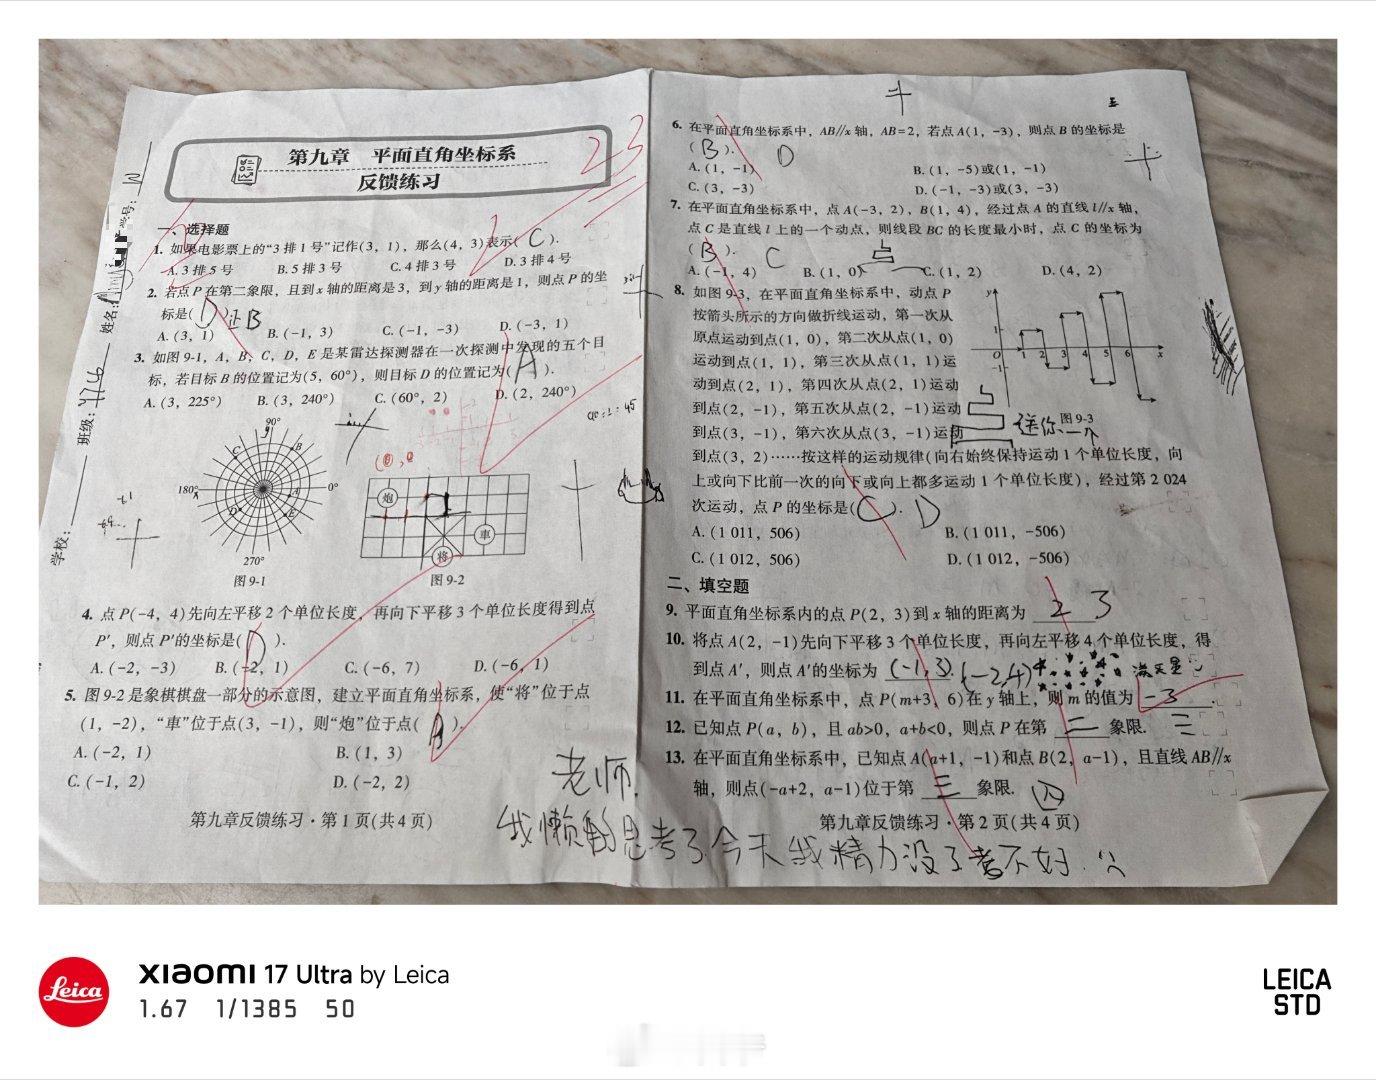 第九章 平面直角坐标系
反馈练习
23
学校：
班级：
姓名：
学号：
一、选择题
1. 如果电影票上的“3 排 1 号”记作(3, 1)，那么(4, 3)表示( C ).
A. 3 排 5 号 B. 5 排 3 号 C. 4 排 3 号 D. 3 排 4 号
2. 若点 P 在第二象限，且到 x 轴的距离是 3，到 y 轴的距离是 1，则点 P 的坐
标是( D ). B
A. (3, 1) B. (-1, 3) C. (-1, -3) D. (-3, 1)
3. 如图 9-1，A，B，C，D，E 是某雷达探测器在一次探测中发现的五个目
标，若目标 B 的位置记为(5, 60°)，则目标 D 的位置记为( A ).
A. (3, 225°) B. (3, 240°) C. (60°, 2) D. (2, 240°)
90°
180° 0°
270°
C B A D E
图 9-1
炮
車
将
图 9-2
4. 点 P(-4, 4)先向左平移 2 个单位长度，再向下平移 3 个单位长度得到点
P′，则点 P′的坐标是( D ).
A. (-2, -3) B. (-2, 1) C. (-6, 7) D. (-6, 1)
5. 图 9-2 是象棋棋盘一部分的示意图，建立平面直角坐标系，使“将”位于点
(1, -2)，“車”位于点(3, -1)，则“炮”位于点( A ).
A. (-2, 1) B. (1, 3)
C. (-1, 2) D. (-2, 2)
第九章反馈练习·第 1 页(共 4 页)
6. 在平面直角坐标系中，AB//x 轴，AB=2，若点 A(1, -3)，则点 B 的坐标是
( B ). D
A. (1, -1) B. (1, -5)或(1, -1)
C. (3, -3) D. (-1, -3)或(3, -3)
7. 在平面直角坐标系中，点 A(-3, 2)，B(1, 4)，经过点 A 的直线 l//x 轴，
点 C 是直线 l 上的一个动点，则线段 BC 的长度最小时，点 C 的坐标为
( B ). C
A. (-1, 4) B. (1, 0) C. (1, 2) D. (4, 2)
8. 如图 9-3，在平面直角坐标系中，动点 P
按箭头所示的方向做折线运动，第一次从
原点运动到点(1, 0)，第二次从点(1, 0)
运动到点(1, 1)，第三次从点(1, 1)运
动到点(2, 1)，第四次从点(2, 1)运动
到点(2, -1)，第五次从点(2, -1)运动
到点(3, -1)，第六次从点(3, -1)运动
到点(3, 2)……按这样的运动规律(向右始终保持运动 1 个单位长度，向
上或向下比前一次的向下或向上都多运动 1 个单位长度)，经过第 2 024
次运动，点 P 的坐标是( C ). D
y
1
O 1 2 3 4 5 6 x
-1
图 9-3
送你一个
A. (1 011, 506) B. (1 011, -506)
C. (1 012, 506) D. (1 012, -506)
二、填空题
9. 平面直角坐标系内的点 P(2, 3)到 x 轴的距离为 2 3
10. 将点 A(2, -1)先向下平移 3 个单位长度，再向左平移 4 个单位长度，得
到点 A′，则点 A′的坐标为 (-1,3). (-2,4) 满天星
11. 在平面直角坐标系中，点 P(m+3, 6)在 y 轴上，则 m 的值为 -3.
12. 已知点 P(a, b)，且 ab>0，a+b<0，则点 P 在第 二 象限. 三
13. 在平面直角坐标系中，已知点 A(a+1, -1)和点 B(2, a-1)，且直线 AB//x
轴，则点(-a+2, a-1)位于第 三 象限. 四
第九章反馈练习·第 2 页(共 4 页)
老师.
我懒的思考了今天我精力没了考不好.
Leica
xiaomi 17 Ultra by Leica
1.67 1/1385 50
LEICA
STD